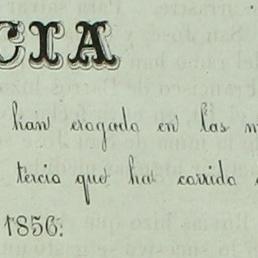 CIA
han erogado en las m
tercia que ha corrido
1856.